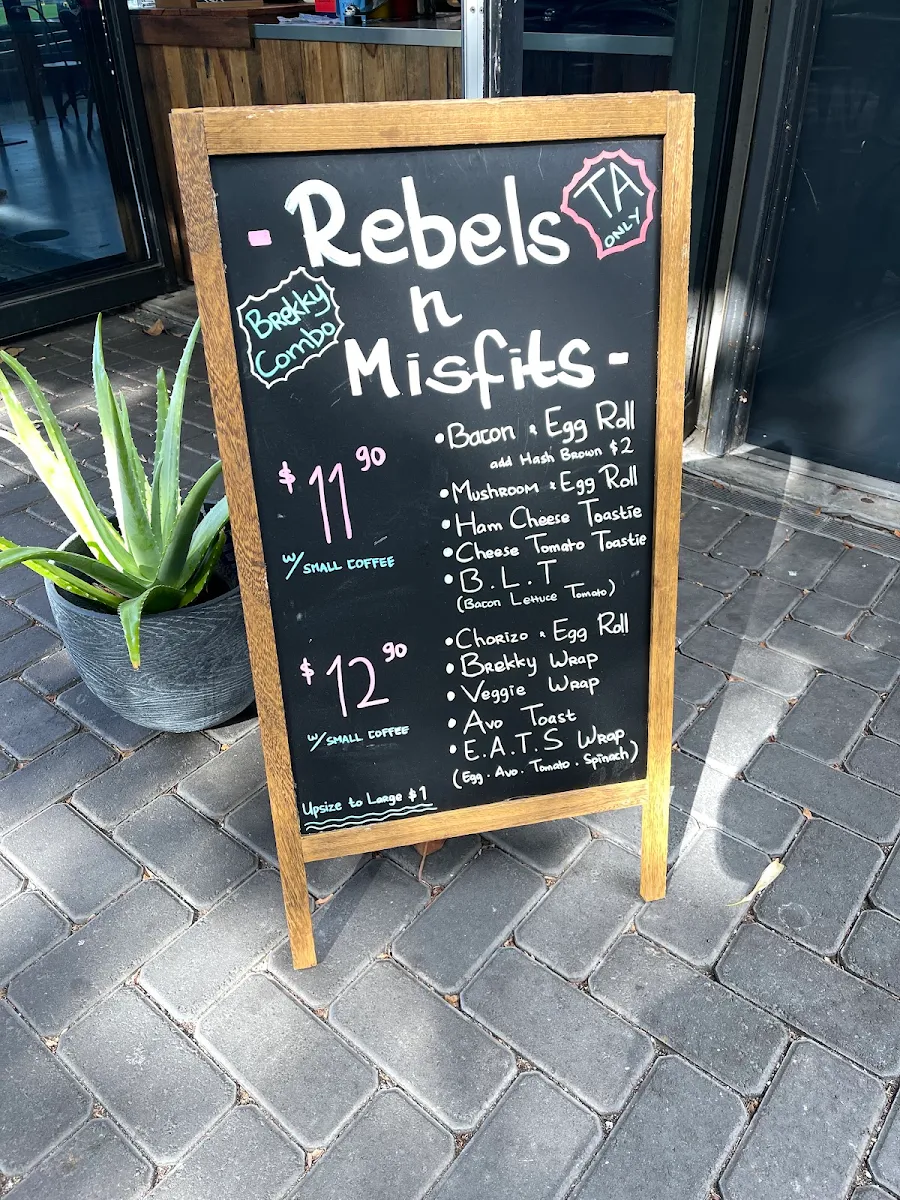 - Rebels
TA
ONLY
n
Brekky
Combo
Misfits -
$11.90
w/ SMALL COFFEE
• Bacon & Egg Roll
add Hash Brown $2
• Mushroom & Egg Roll
• Ham Cheese Toastie
• Cheese Tomato Toastie
• B.L.T
(Bacon Lettuce Tomato)
$12.90
w/ SMALL COFFEE
• Chorizo & Egg Roll
• Brekky Wrap
• Veggie Wrap
• Avo Toast
• E.A.T.S Wrap
(Egg. Avo. Tomato. Spinach)
Upsize to Large $1